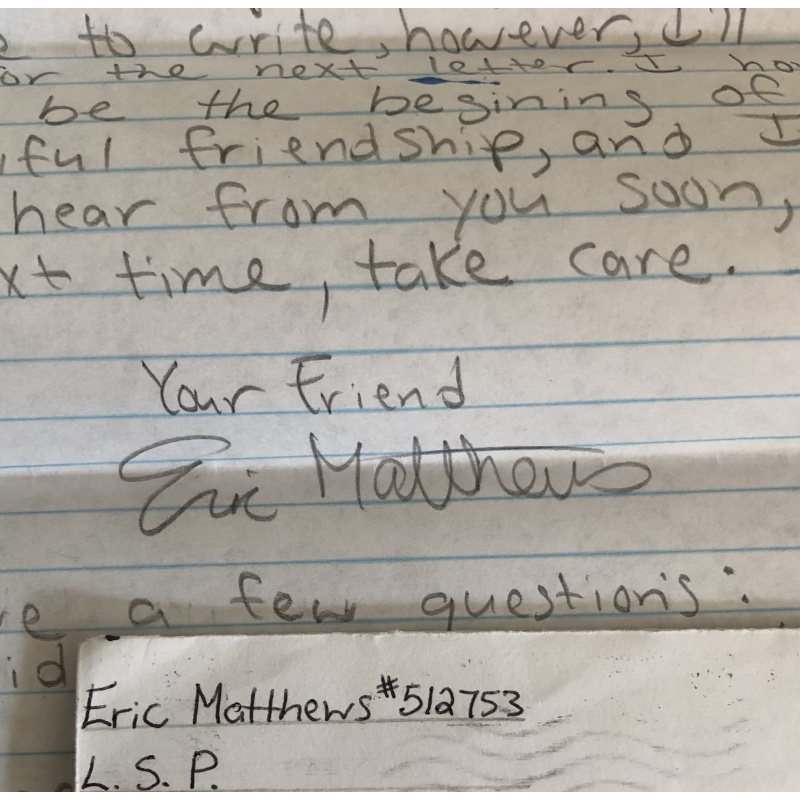 to write, however, I'll
or the next letter. I
be the begining of
friendship, and I
hear from you soon,
time, take care.
Your Friend
Eric Matthews
a few questions:
Eric Matthews #512753
L. S. P.